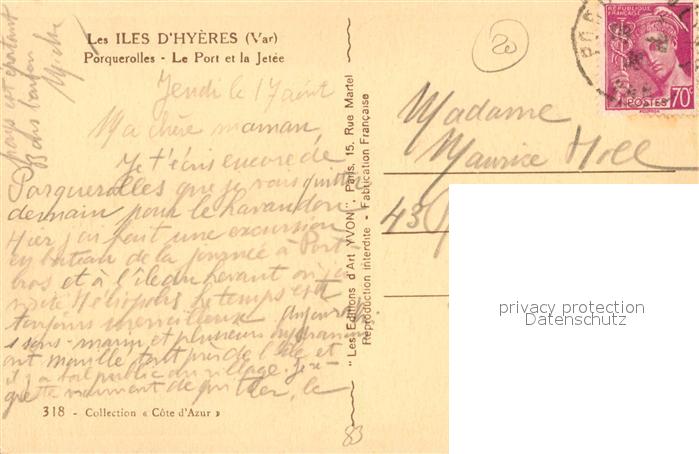 Les ILES D'HYÈRES (Var)
Porquerolles - Le Port et la Jetée
Jeudi le 17 août
Ma chère maman,
Je t'écris encore de
Porquerolles que je vais quitter
demain pour le Lavandou
Hier j'ai fait une excursion
en bateau de la journée à Port-
cros et à l'île du Levant où j'ai
visité Héliopolis. Le temps est
toujours merveilleux. Aujourd'hui
1 sous-marin et plusieurs hydravions
ont mouillé tout près de l'île et
il y a bal public au village. Je re-
grette vraiment de quitter, le
pays est épatant
Bons baisers
318 - Collection « Côte d'Azur »
" Les Editions d'Art YVON ", Paris, 15, Rue Martel
Reproduction interdite - Fabrication Française
20
RÉPUBLIQUE FRANÇAISE
POSTES 70c
Madame
Maurice Holl
43
privacy protection
Datenschutz
83